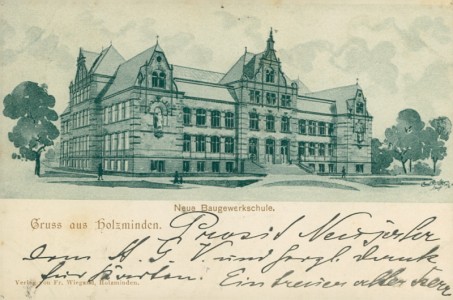 Neue Baugewerkschule.
Gruss aus Holzminden.
Prosit Neujahr
dem A. G. V. und herzl. dank
für Karten. Ein treuer alter Herr
Verlag von Fr. Wiegand, Holzminden.